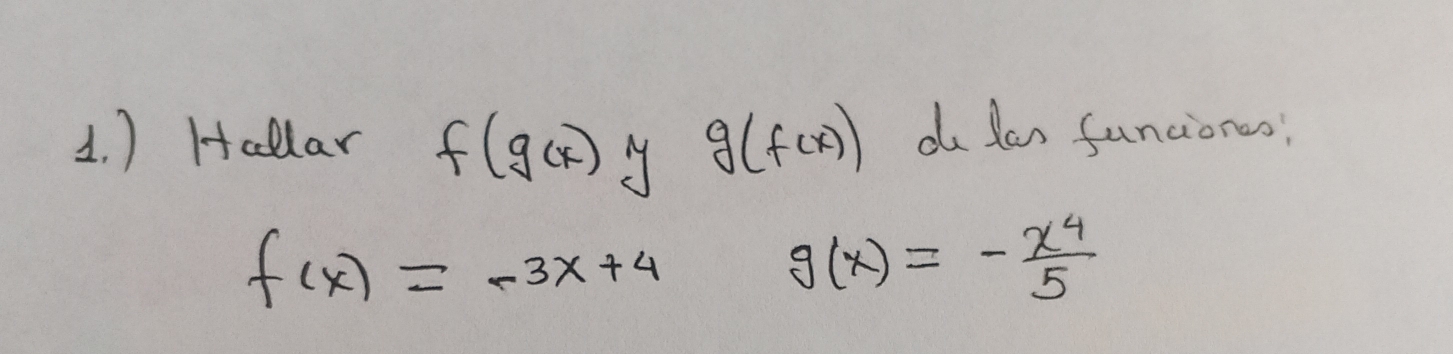 1.) Hallar f(g(x) y g(f(x)) de las funciones:
f(x) = -3x+4 g(x) = - x⁴/5